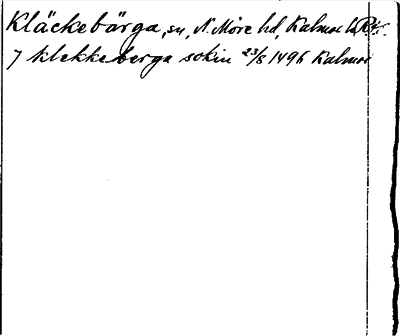 Kläckebärga, sn, N. Möre hd, Kalmar l.
7 klekkeberga sokin 23/8 1496 Kalmar